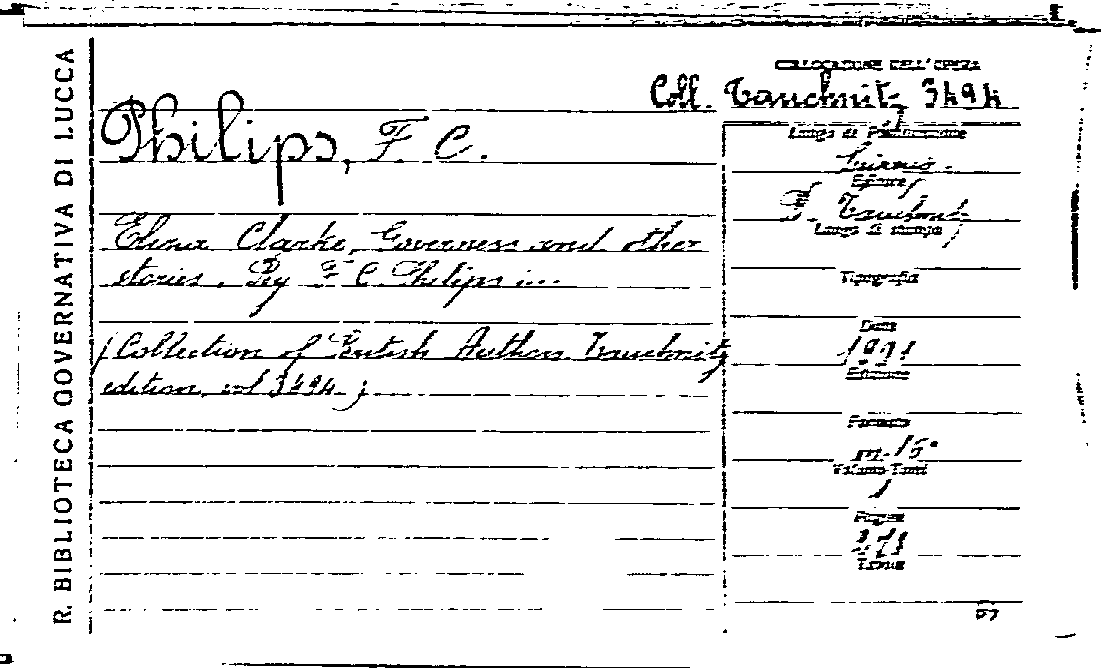 R. BIBLIOTECA GOVERNATIVA DI LUCCA
COLLOCAZIONE DELL'OPERA
Coll. Tauchnitz 3494
Philips, F. C.
Luogo di Pubblicazione
Editore
Luogo di stampa
Clarke, Governess and other
stories. By F. C. Philips ....
Tipografia
Data
(Collection of British Authors Tauchnitz
edition, vol 3494.)
Edizione
Formato
in-16°
Volume-Tomi
1
Pagine
271
Tavole